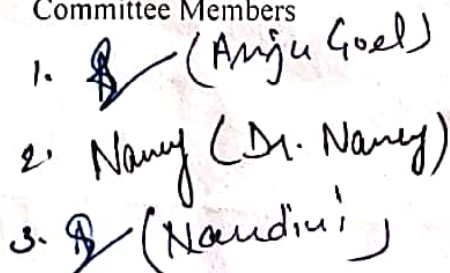 Committee Members
1. (Anju Goel)
2. Nancy (Dr. Nancy)
3. (Nandini)